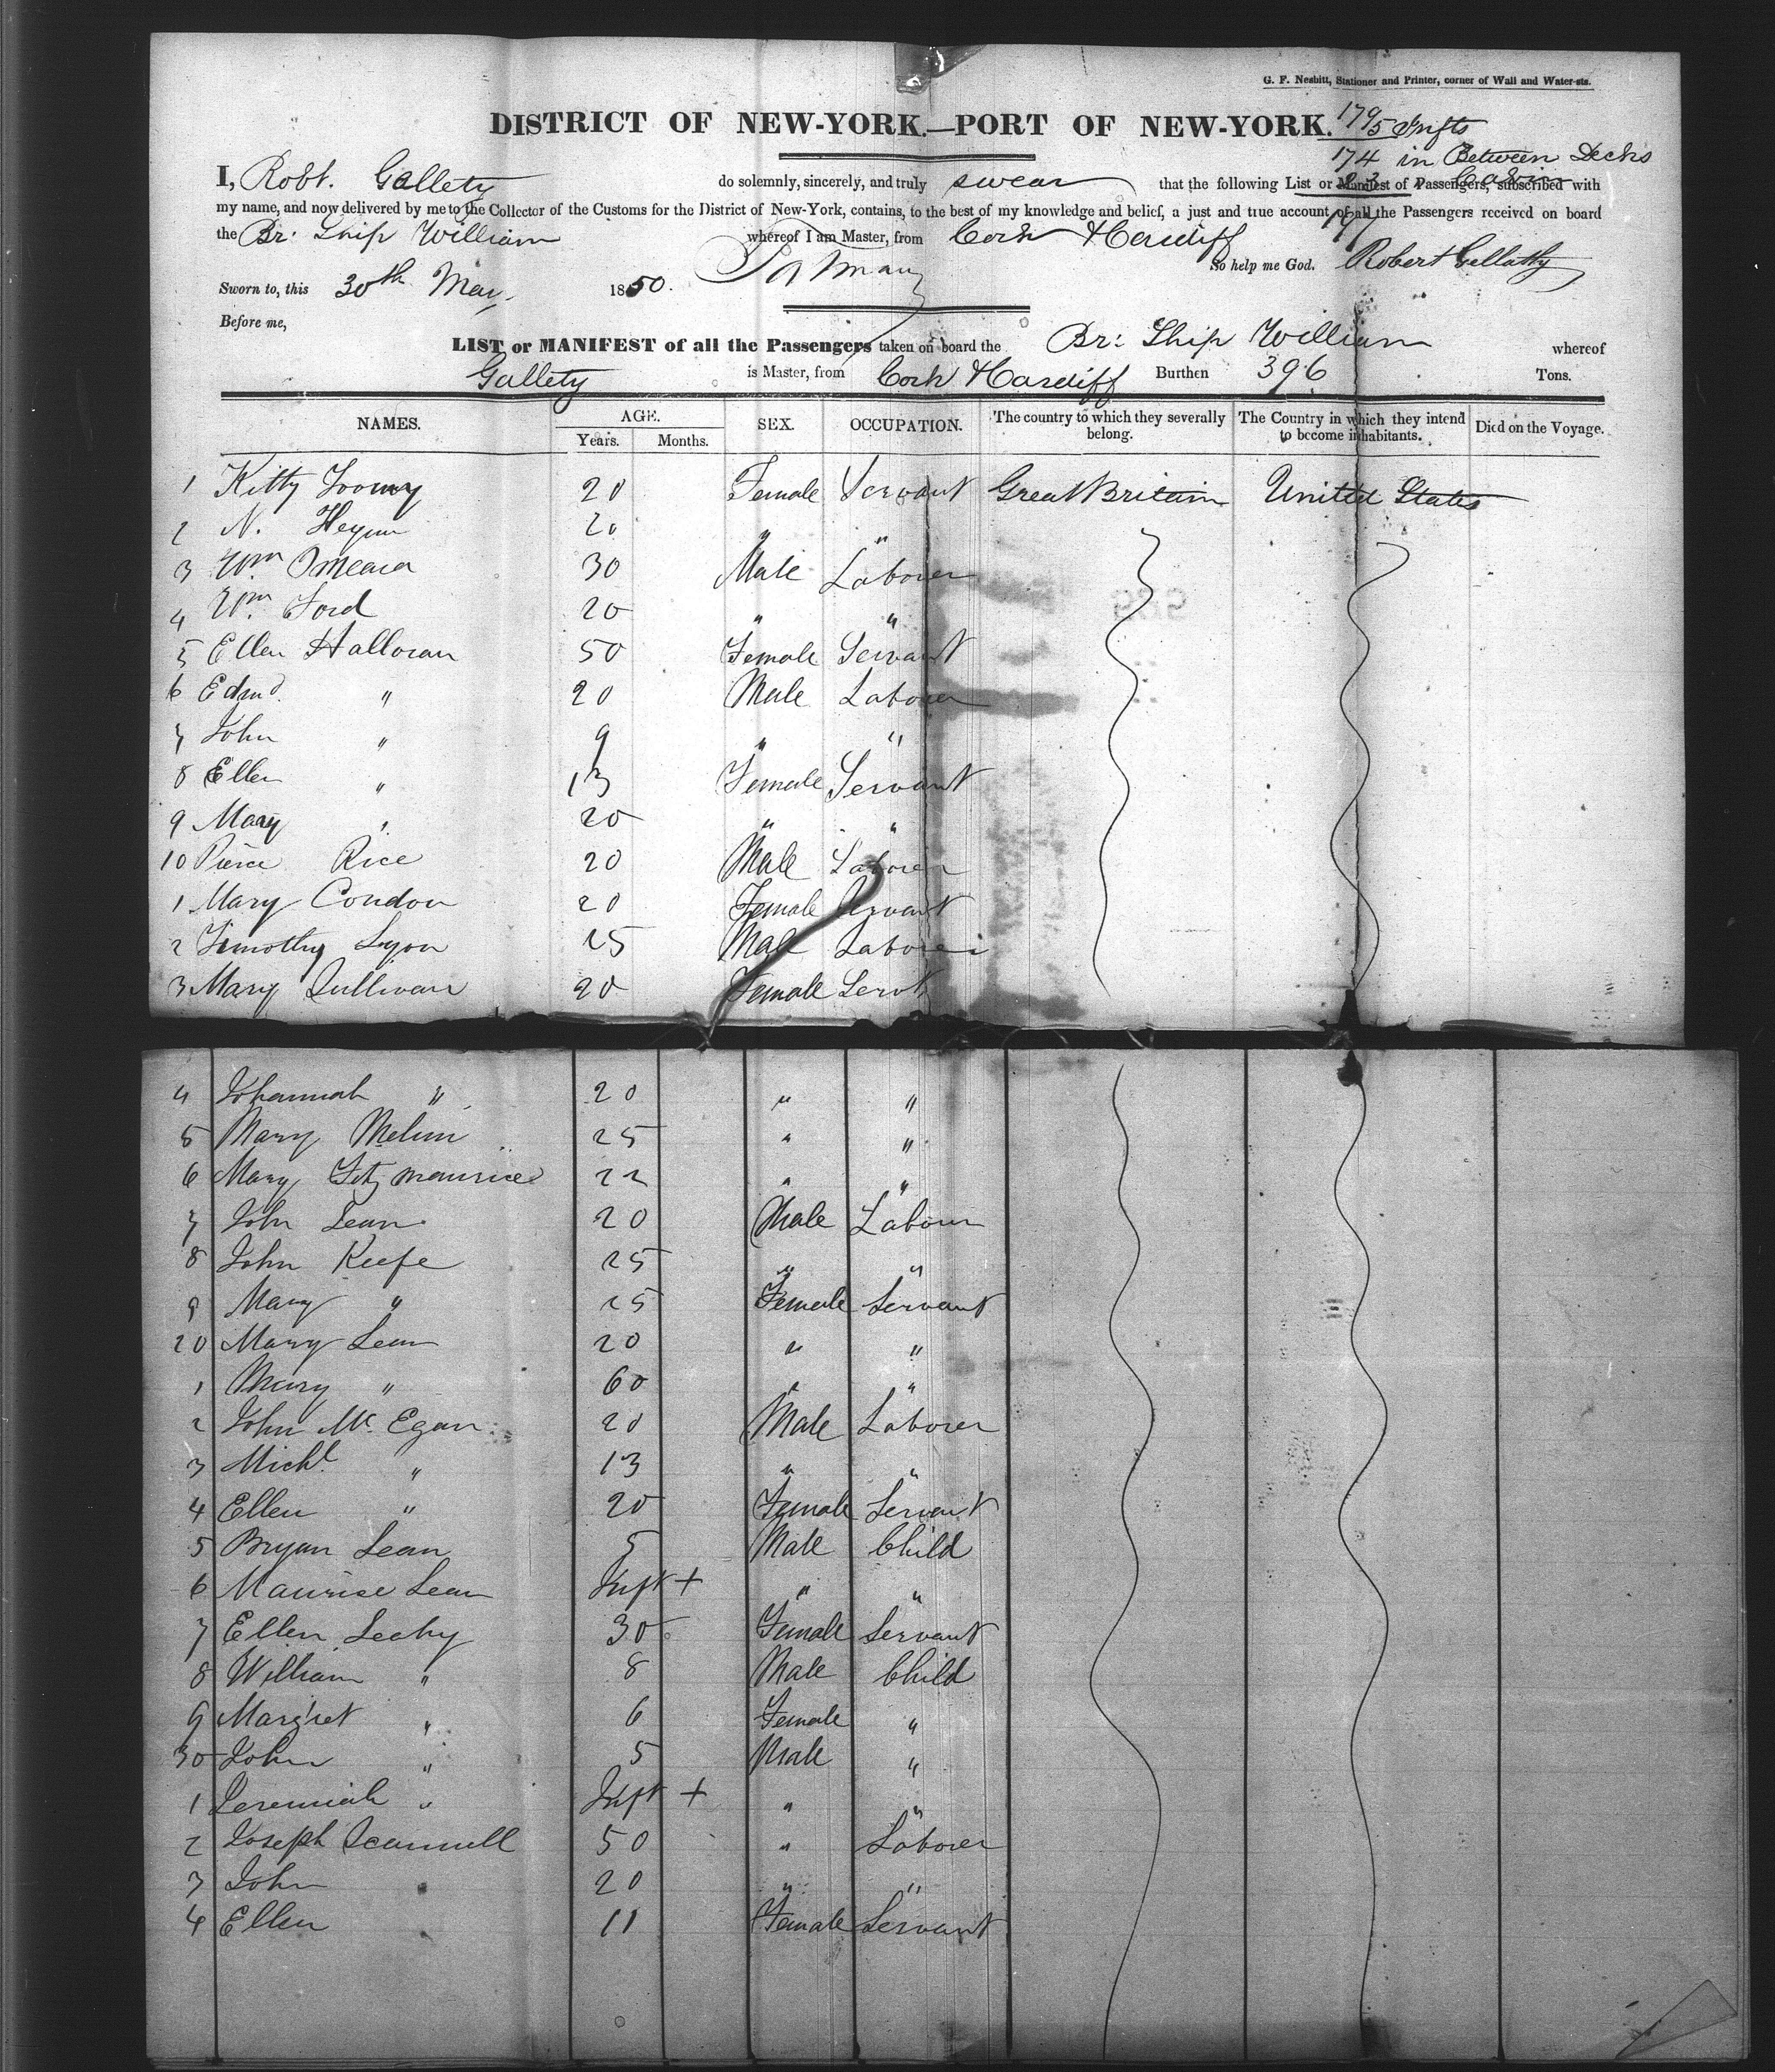 G. F. Nesbitt, Stationer and Printer, corner of Wall and Water-sts.
DISTRICT OF NEW-YORK.—PORT OF NEW-YORK. 179/5 Infts
174 in Between Decks
I, Robt. Gallety do solemnly, sincerely, and truly swear that the following List or Manifest of Passengers, subscribed with
my name, and now delivered by me to the Collector of the Customs for the District of New-York, contains, to the best of my knowledge and belief, a just and true account of all the Passengers received on board
the Br: Ship William whereof I am Master, from Cork &
So help me God. Robert Gellatly
Sworn to, this 30th May, 1850.
Before me,
LIST or MANIFEST of all the Passengers taken on board the Br: Ship William whereof
Gallety is Master, from Cork & Burthen 396 Tons.
NAMES. AGE. SEX. OCCUPATION. The country to which they severally belong. The Country in which they intend to become inhabitants. Died on the Voyage.
Years. Months.
1 Kitty 20 Female Servant Great Britain United States
2 N. 20 " "
3 Wm. OMeara 30 Male Laborer
4 Wm. Ford 20 " "
5 Ellen Halloran 50 Female Servant
6 Edmd. " 20 Male Laborer
7 John " 9 " "
8 Ellen " 13 Female Servant
9 Mary " 20 " "
10 Pierce Rice 20 Male Laborer
1 Mary Condon 20 Female Servant
2 Timothy Lyon 25 Male Laborer
3 Mary Sullivan 20 Female Servt
4 Johannah " 20 " "
5 Mary 25 " "
6 Mary Fitzmaurice 22 " "
7 John Lean 20 Male Labour
8 John Keefe 25 " "
9 Mary " 25 Female Servant
20 Mary Lean 20 " "
1 Mary " 60 " "
2 John Mc. Egan 20 Male Laborer
3 Michl. " 13 " "
4 Ellen " 20 Female Servant
5 Bryan Lean 5 Male Child
6 Maurise Lean Inft + " "
7 Ellen Leahy 30 Female Servant
8 William " 8 Male Child
9 Margret " 6 Female "
30 John " 5 Male "
1 Jeremiah " Inft + " "
2 Joseph Scannell 50 " Laborer
3 John " 20 " "
4 Ellen " 11 Female Servant